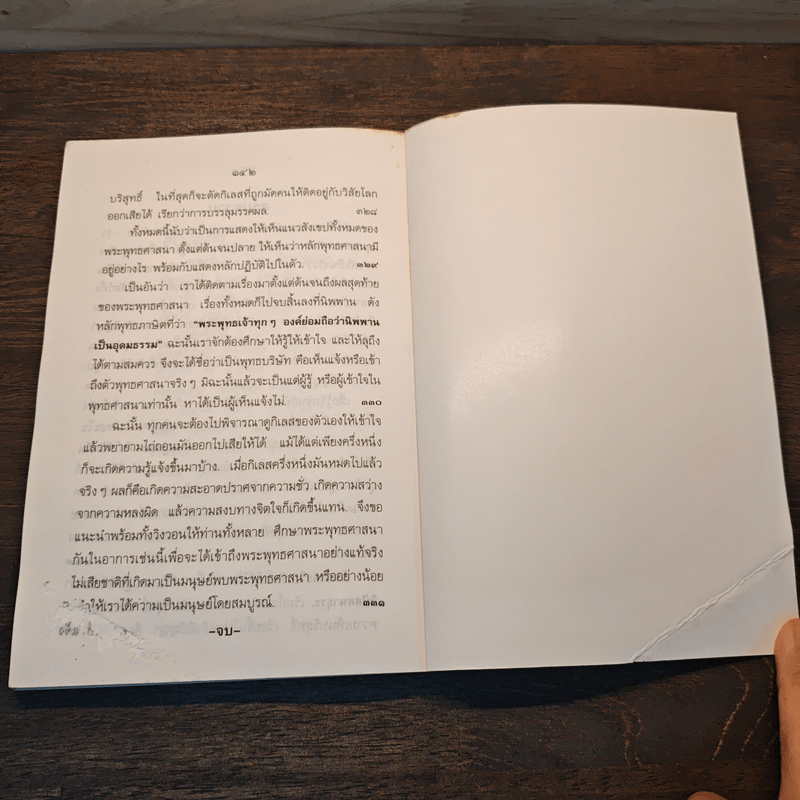 ๑๔๒
บริสุทธิ์ ในที่สุดก็จะตัดกิเลสที่ถูกมัดคนให้ติดอยู่กับวิสัยโลก
ออกเสียได้ เรียกว่าการบรรลุมรรคผล. ๓๒๘
ทั้งหมดนี้นับว่าเป็นการแสดงให้เห็นแนวสังเขปทั้งหมดของ
พระพุทธศาสนา ตั้งแต่ต้นจนปลาย ให้เห็นว่าหลักพุทธศาสนามี
อยู่อย่างไร พร้อมกับแสดงหลักปฏิบัติไปในตัว. ๓๒๙
เป็นอันว่า เราได้ติดตามเรื่องมาตั้งแต่ต้นจนถึงผลสุดท้าย
ของพระพุทธศาสนา เรื่องทั้งหมดก็ไปจบสิ้นลงที่นิพพาน ดัง
หลักพุทธภาษิตที่ว่า “พระพุทธเจ้าทุกๆ องค์ย่อมถือว่านิพพาน
เป็นอุดมธรรม” ฉะนั้นเราจักต้องศึกษาให้รู้ให้เข้าใจ และให้ลุถึง
ได้ตามสมควร จึงจะได้ชื่อว่าเป็นพุทธบริษัท คือเห็นแจ้งหรือเข้า
ถึงตัวพุทธศาสนาจริงๆ มิฉะนั้นแล้วจะเป็นแต่ผู้รู้ หรือผู้เข้าใจใน
พุทธศาสนาเท่านั้น หาได้เป็นผู้เห็นแจ้งไม่. ๓๓๐
ฉะนั้น ทุกคนจะต้องไปพิจารณาดูกิเลสของตัวเองให้เข้าใจ
แล้วพยายามไถ่ถอนมันออกไปเสียให้ได้ แม้ได้แต่เพียงครึ่งหนึ่ง
ก็จะเกิดความรู้แจ้งขึ้นมาบ้าง. เมื่อกิเลสครึ่งหนึ่งมันหมดไปแล้ว
จริงๆ ผลก็คือเกิดความสะอาดปราศจากความชั่ว เกิดความสว่าง
จากความหลงผิด แล้วความสงบทางจิตใจก็เกิดขึ้นแทน. จึงขอ
แนะนำพร้อมทั้งวิงวอนให้ท่านทั้งหลาย ศึกษาพระพุทธศาสนา
กันในอาการเช่นนี้เพื่อจะได้เข้าถึงพระพุทธศาสนาอย่างแท้จริง
ไม่เสียชาติที่เกิดมาเป็นมนุษย์พบพระพุทธศาสนา หรืออย่างน้อย
ให้เราได้ความเป็นมนุษย์โดยสมบูรณ์. ๓๓๑
–จบ–